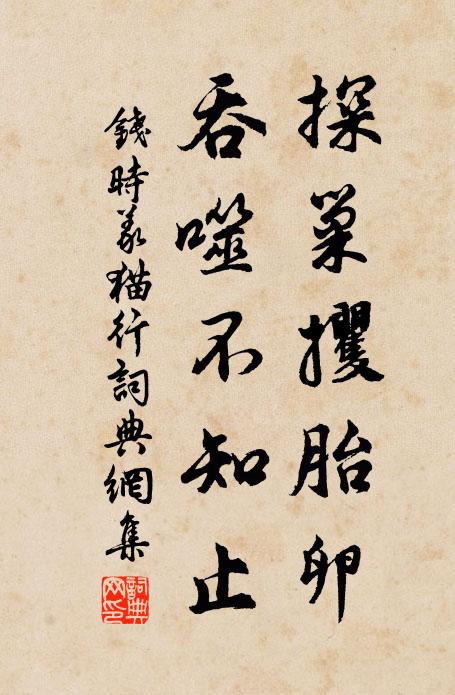 探巢攫胎卵
吞噬不知止
錢時義猫行詞典網集
詞典网印